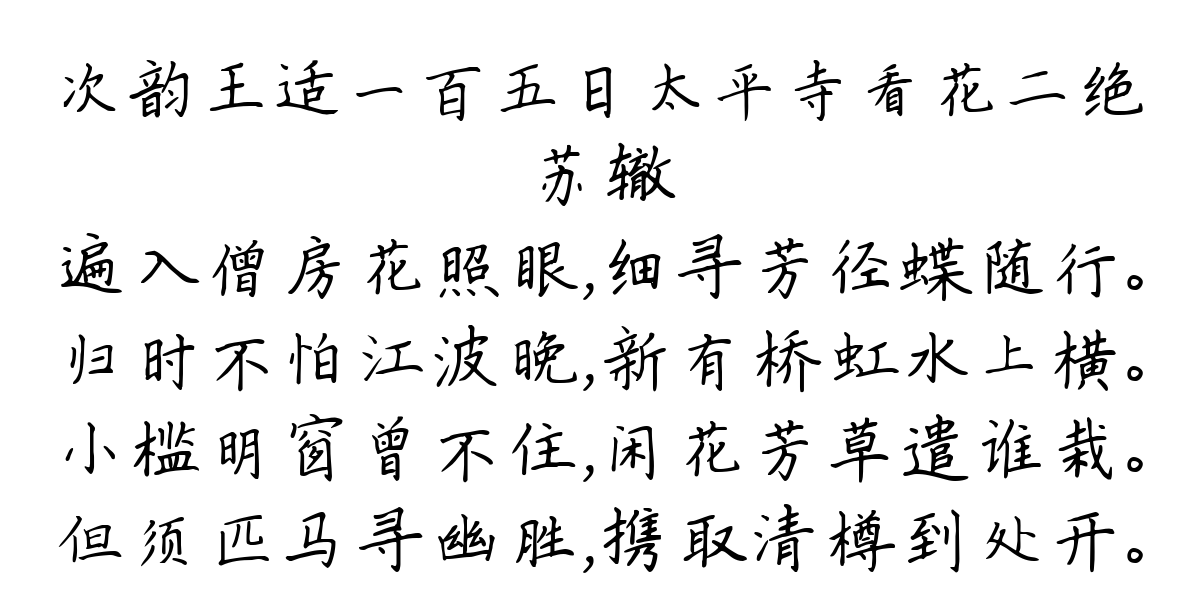 次韵王适一百五日太平寺看花二绝
苏辙
遍入僧房花照眼,细寻芳径蝶随行。
归时不怕江波晚,新有桥虹水上横。
小槛明窗曾不住,闲花芳草遣谁栽。
但须匹马寻幽胜,携取清樽到处开。